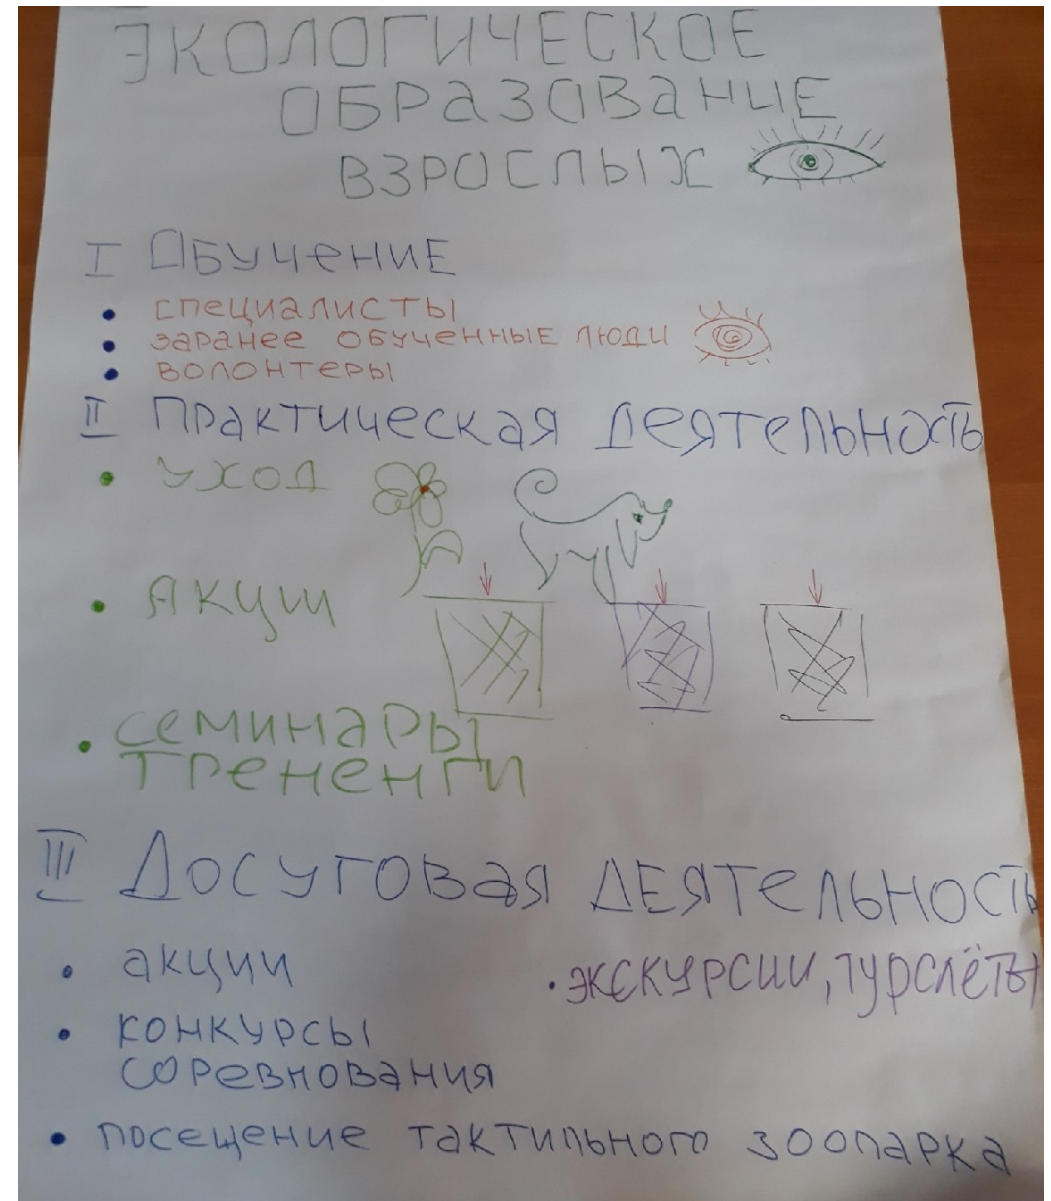 ЭКОЛОГИЧЕСКОЕ
ОБРАЗОВАНИЕ
ВЗРОСЛЫХ
I Обучение
• специалисты
• заранее обученные люди
• волонтеры
II Практическая деятельность
• уход
• Акции
• семинары
тренснги
III Досуговая деятельность
• акции
• экскурсии, турслёты
• конкурсы
соревнования
• посещение тактильного зоопарка